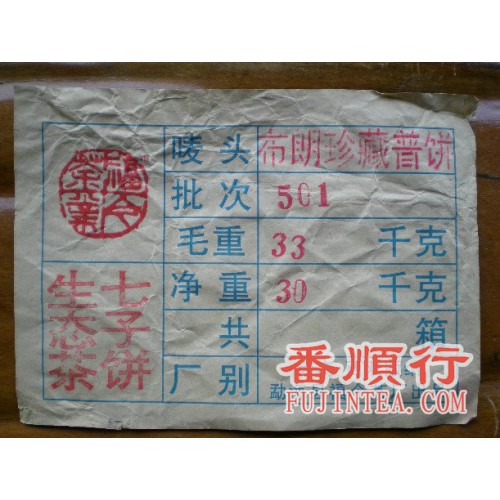 福今茶業
七子饼
生态茶
唛头 布朗珍藏普饼
批次 501
毛重 33 千克
净重 30 千克
共 箱
厂别
番順行
FUJINTEA.COM